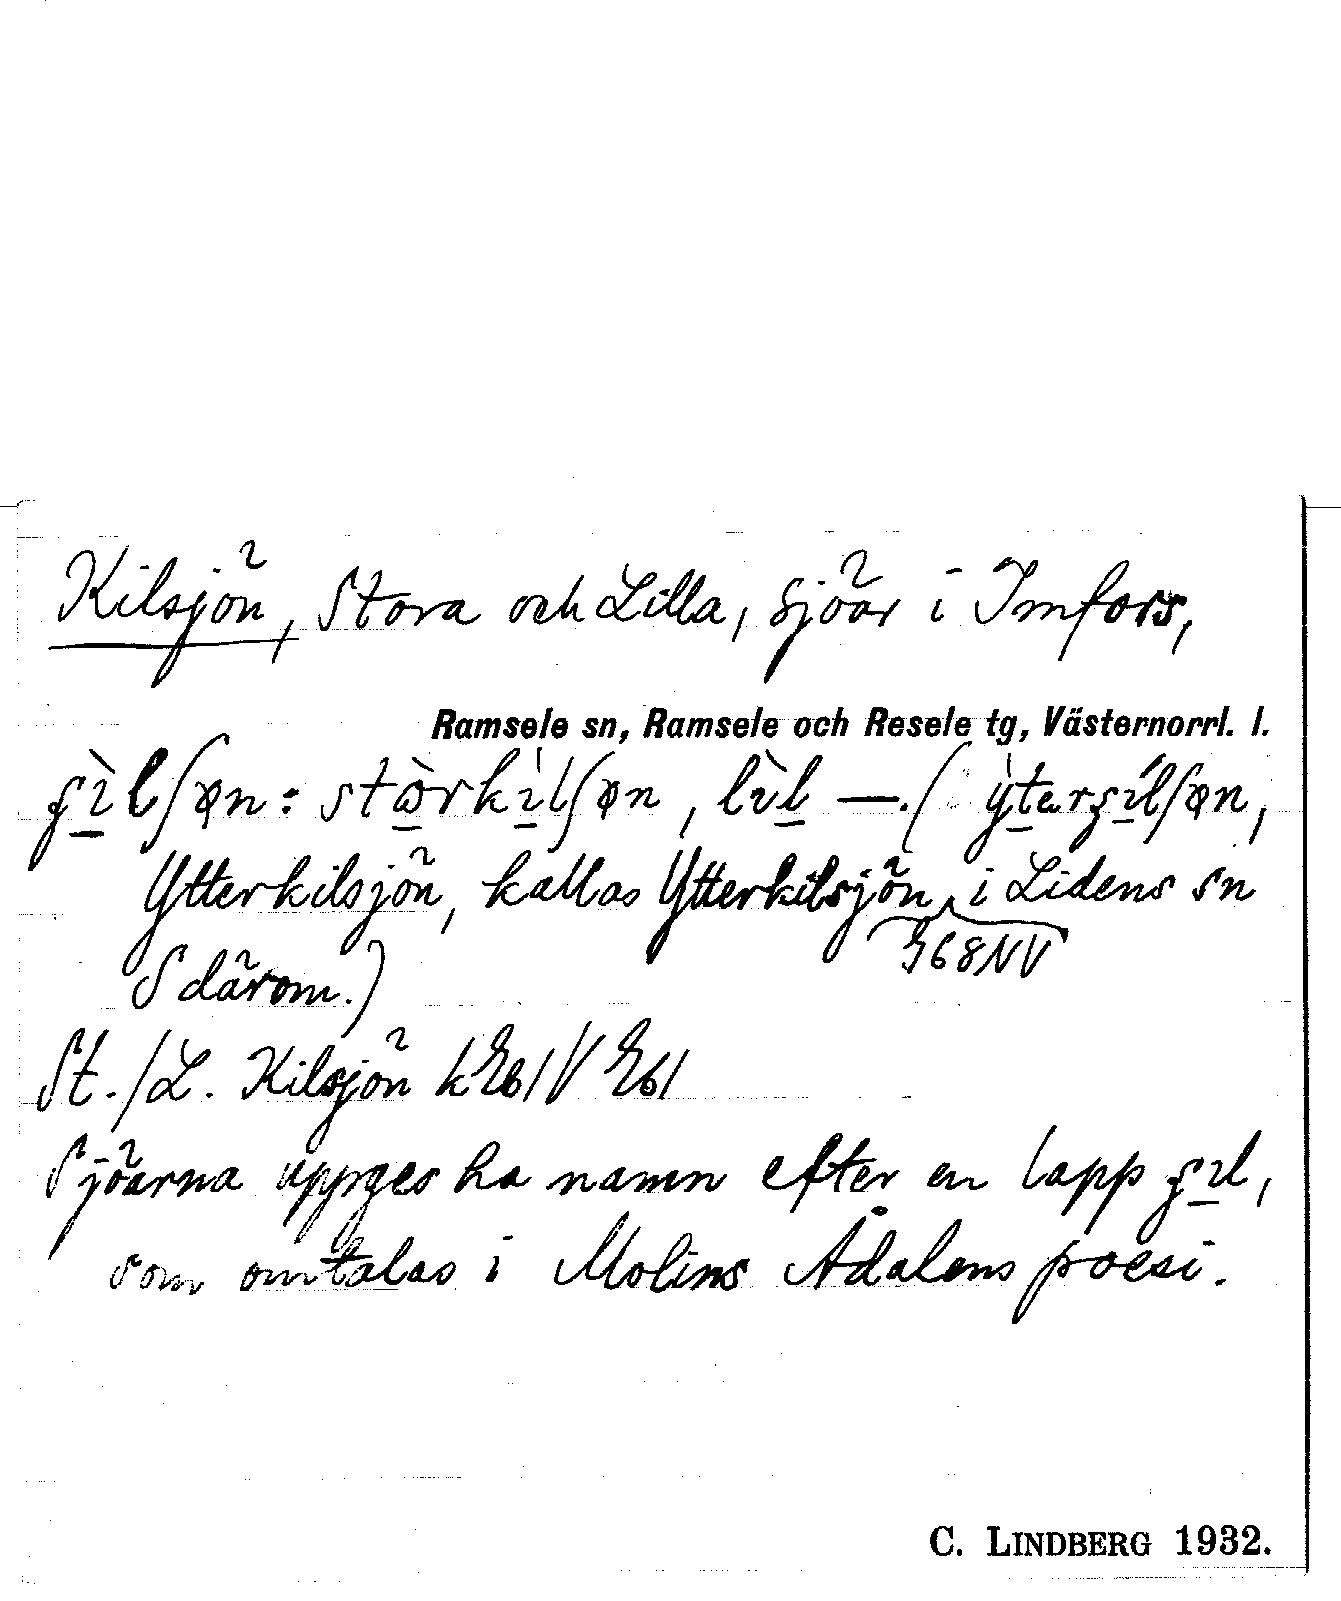 Kilsjön, Stora och Lilla, sjöar i Imfors,
Ramsele sn, Ramsele och Resele tg, Västernorrl. l.
Ytterkilsjön, kallas Ytterkilsjön i Lidens sn
68NV
S därom.)
St./L. Kilsjön
Sjöarna uppges ha namn efter en lapp
som omtalas i Molins Ådalens poesi.
C. LINDBERG 1932.